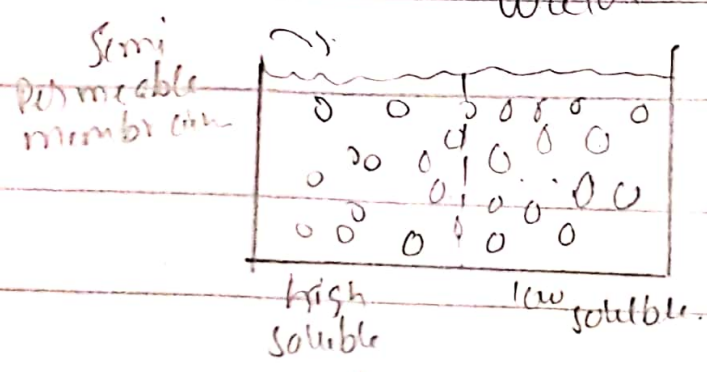 Semi
Permeable
membrane
high
soluble
low soluble.